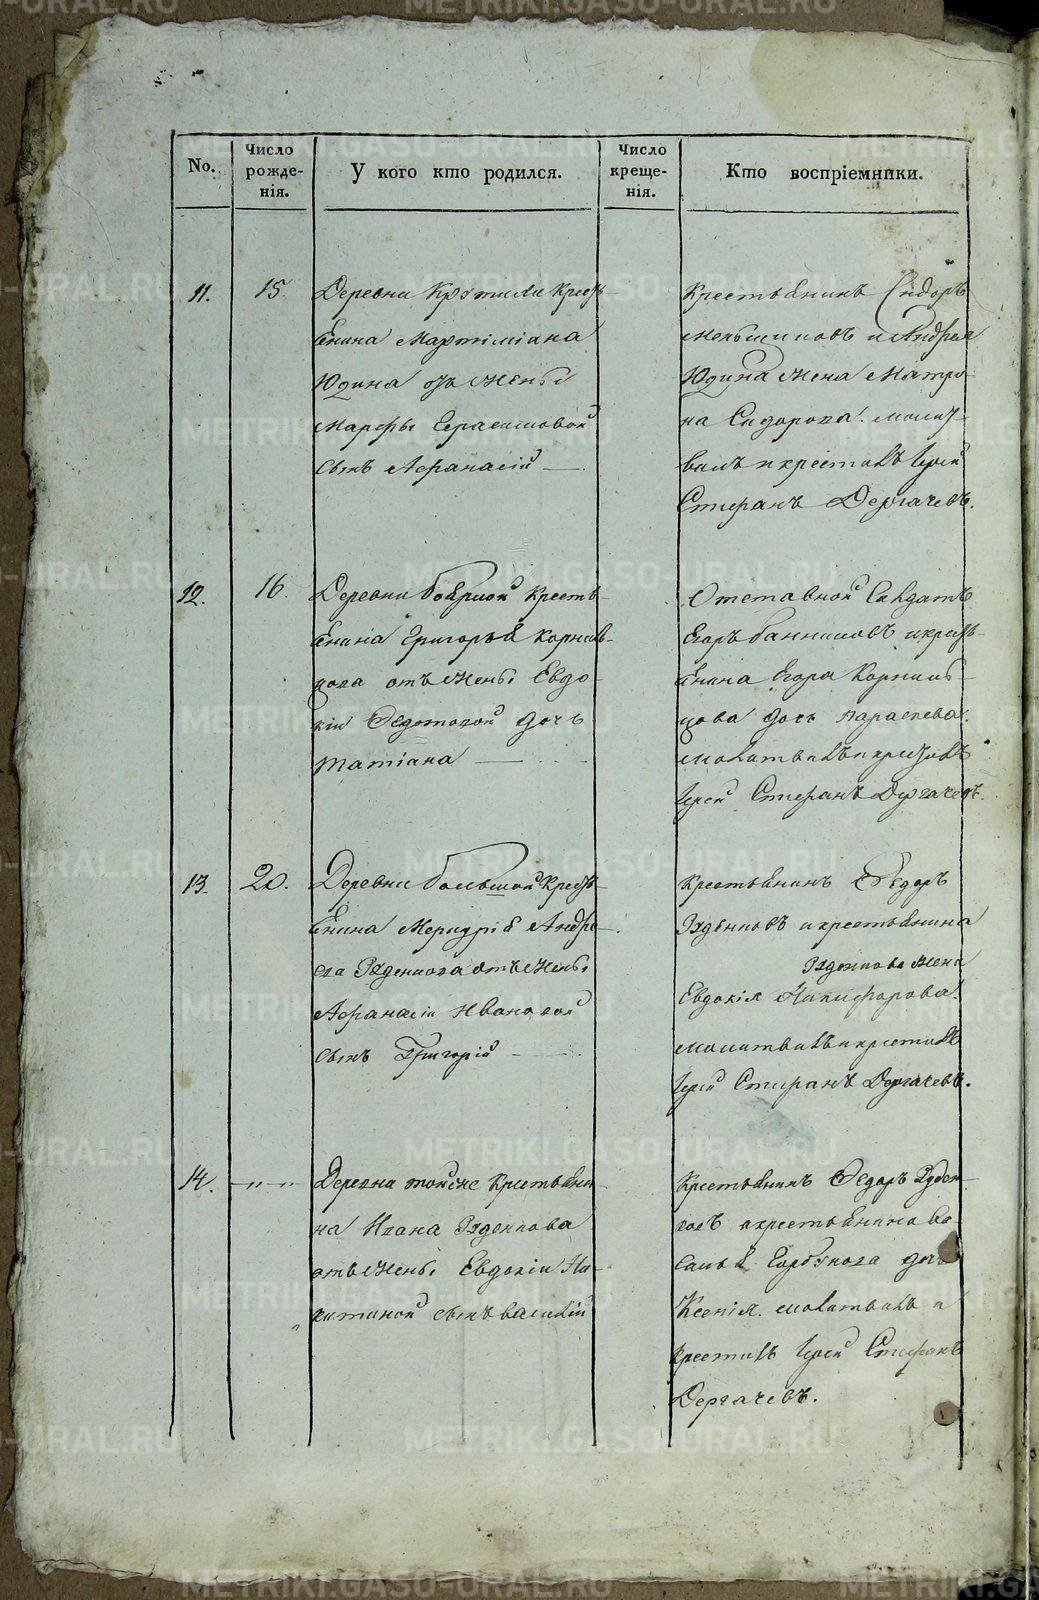 No.
Число рожде-
нія.
У кого кто родился.
Число креще-
нія.
Кто воспріемники.
11.
15
Деревни Крутили Крест
янина Мартиміана
Юдина отъ жены
Марфы Герасимовой
сынъ Афанасій —
Крестьянинъ Сидоръ
Меньшиковъ и Андрея
Юдина жена Матро-
на Сидорова. молит-
вилъ и крестилъ Іерей
Стефанъ Дергачевъ.
12.
16.
Деревни Крестъ-
янина Григорья Корнил-
цова отъ жены Евдо-
кіи Федотовой дочь
Татіана —
Отставной Салдатъ
Егоръ Банниковъ и крест-
янина Егора Корниль-
цова дочь Параскева.
молитвилъ и крестилъ
Іерей Стефанъ Дергачевъ.
13.
20.
Деревни большой Крест-
янина Меркурія Андре-
ева отъ жены
Афанасіи Ивановой
сынъ Григорій —
Крестьянинъ Федоръ
и крестьянина
жена
Евдокія Никифорова.
молитвилъ и крестилъ
Іерей Стефанъ Дергачевъ.
14.
—"—"—
Деревни тойже Крестьяни-
на Ивана
отъ жены Евдокіи Ни-
китиной сынъ Василій
Крестьянинъ Федоръ
и крестьянина Ва-
силья Горбунова дочь
Ксенія. молитвилъ и
крестилъ Іерей Стефанъ
Дергачевъ.
METRIKI.GASO-URAL.RU